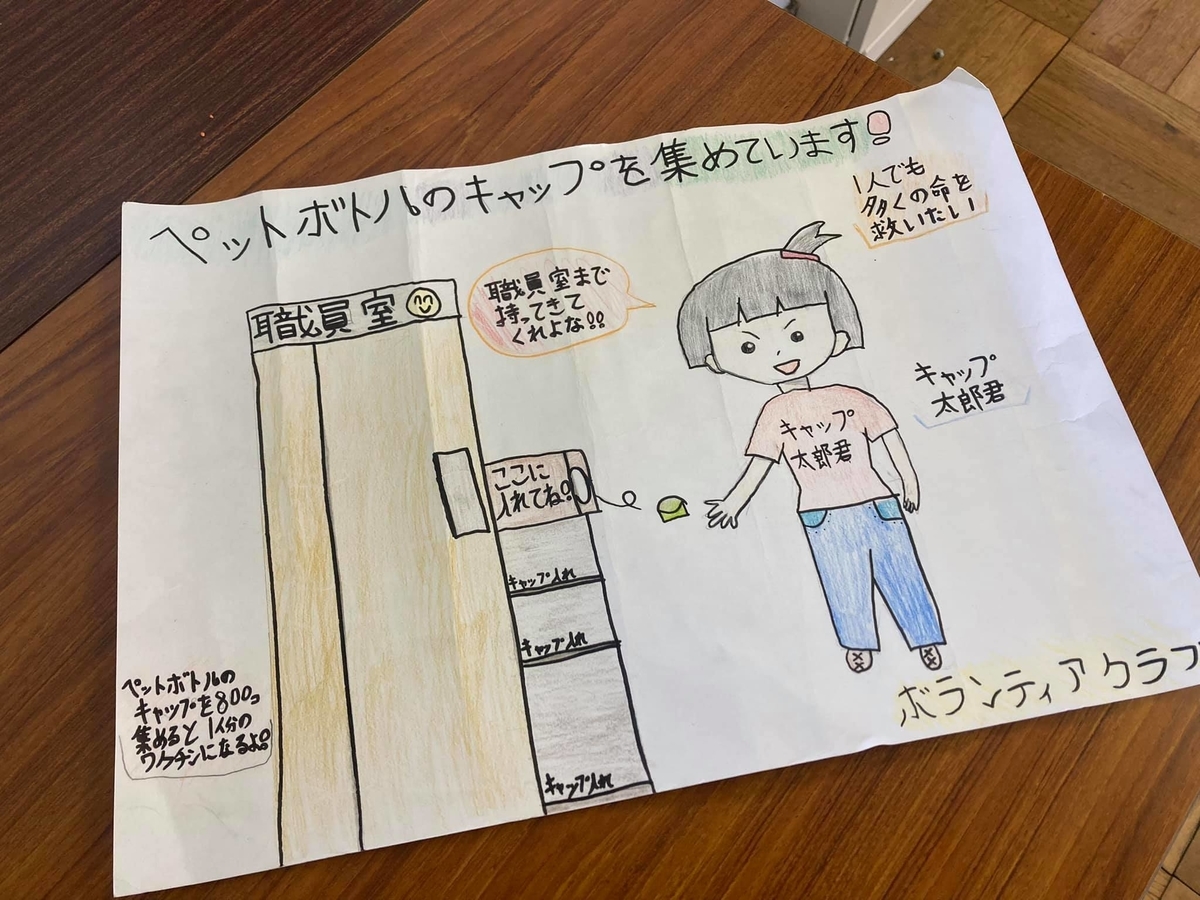 ペットボトルのキャップを集めています!
1人でも
多くの命を
救いたい
職員室まで
持ってきて
くれよな!!
職員室
キャップ
太郎君
キャップ
太郎君
ここに
入れてね!
キャップ入れ
キャップ入れ
キャップ入れ
ペットボトルの
キャップを800コ
集めると1人分の
ワクチンになるよ!
ボランティアクラブ